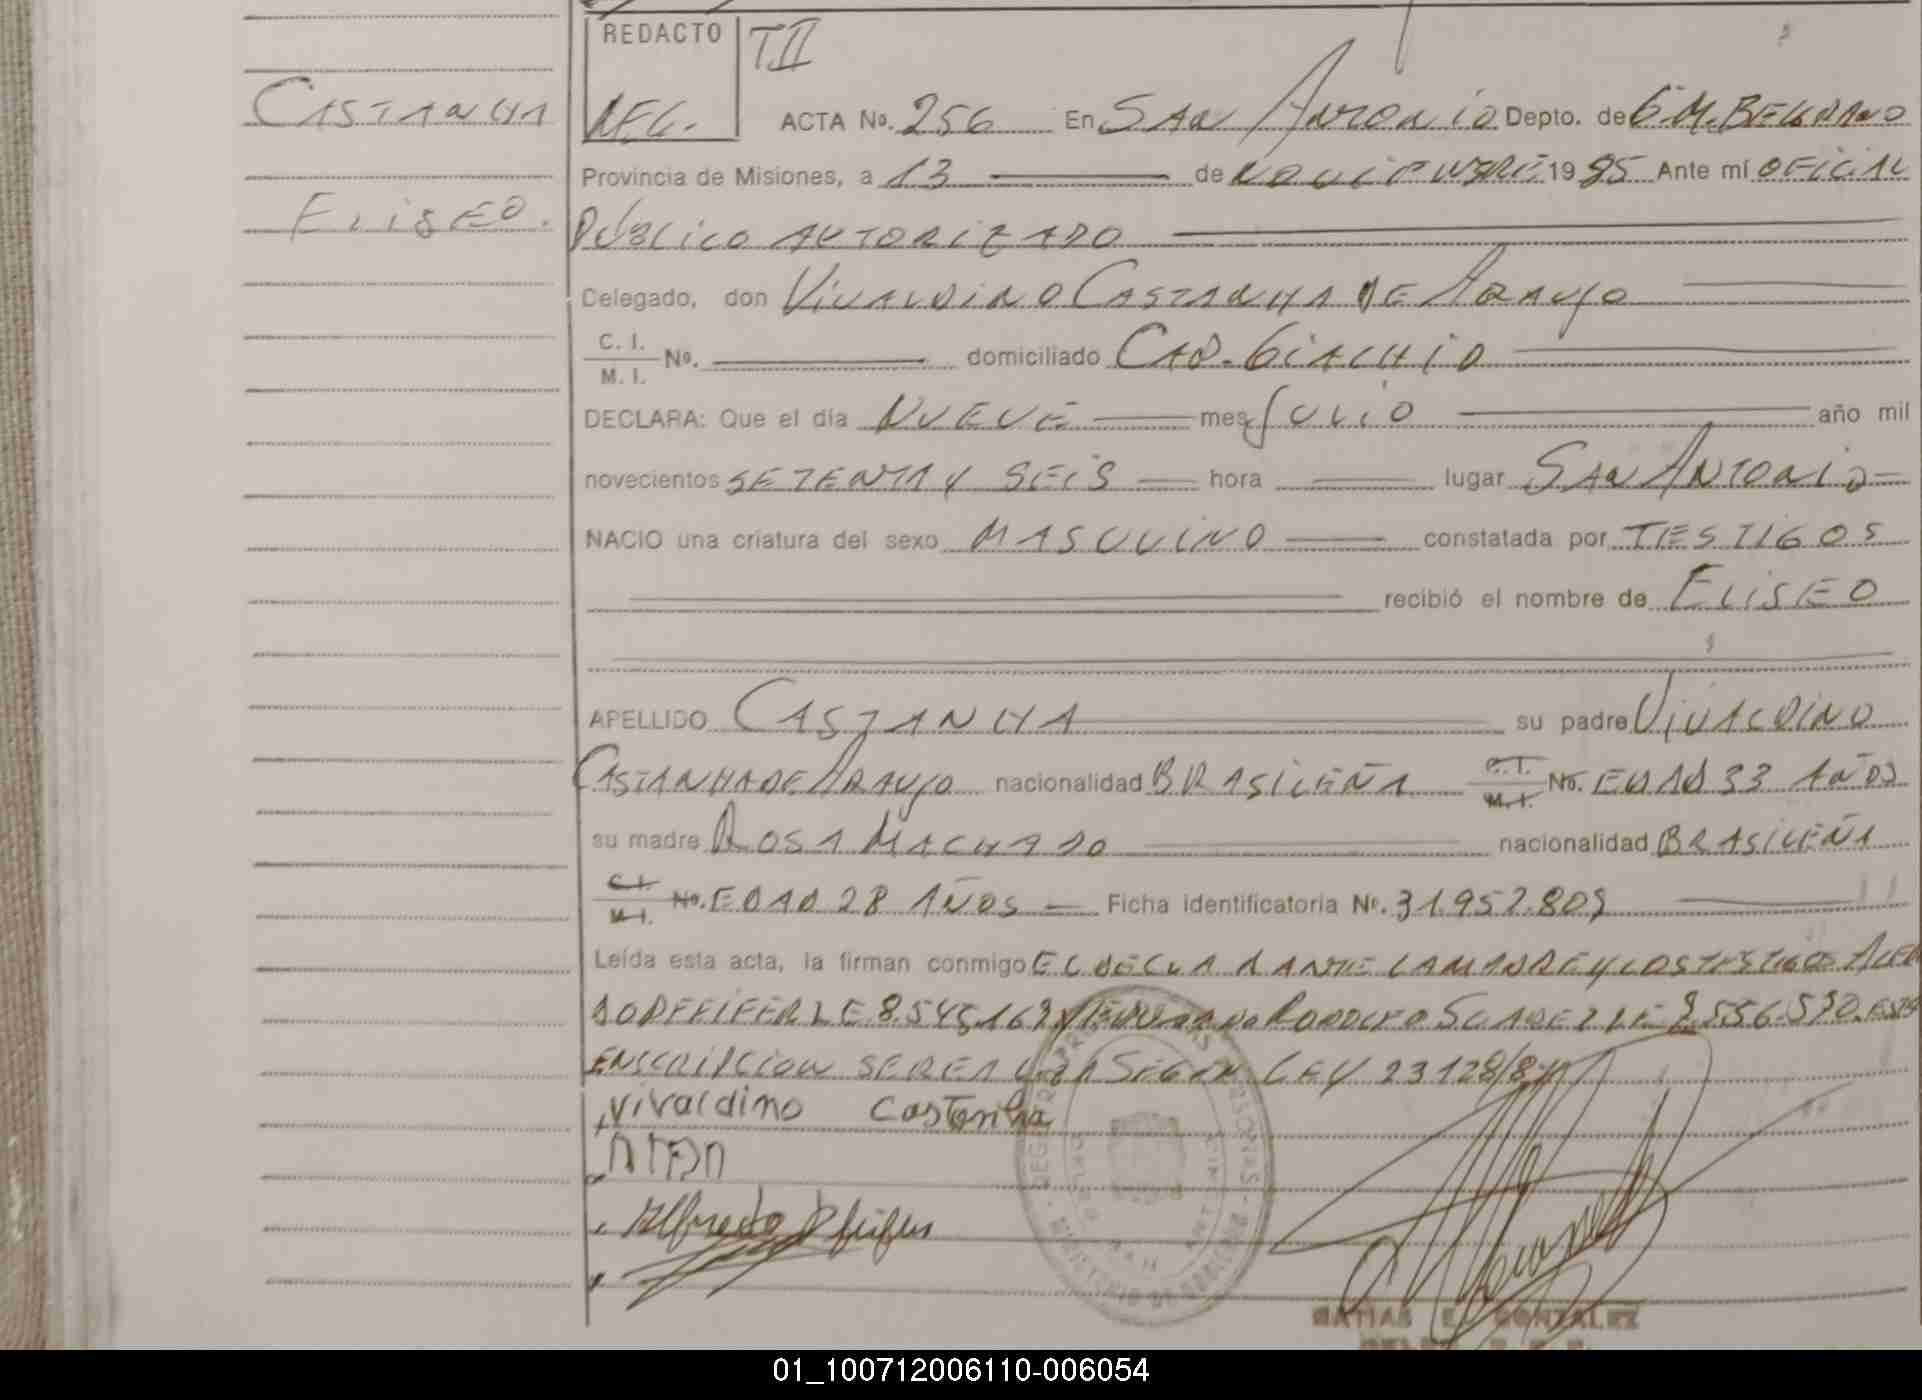 REDACTO TII
CASTANHA
ACTA No. 256 En SAN ANTONIO Depto. de G M. BELGRANO
Provincia de Misiones, a 13 de NOVIEMBRE 1985 Ante mí OFICIAL
ELISEO.
PUBLICO AUTORIZADO
Delegado, don VIVALDINO CASTANHA DE ARAUJO
C. I.
M. I. No. domiciliado CAP. GIACHIO
DECLARA: Que el día NUEVE mes JULIO año mil
novecientos SETENTA Y SEIS hora lugar SAN ANTONIO
NACIO una criatura del sexo MASCULINO constatada por TESTIGOS
recibió el nombre de ELISEO
APELLIDO CASTANHA su padre VIVALDINO
CASTANHA DE ARAUJO nacionalidad BRASILEÑA C. I. M. I. No. EDAD 33 AÑOS
su madre ROSA MACHADO nacionalidad BRASILEÑA
C. I. M. I. No. EDAD 28 AÑOS Ficha identificatoria No. 31.957.809
Leída esta acta, la firman conmigo EL DECLARANTE LA MADRE Y LOS TESTIGOS ALFRE
DO PFEIFER L E 8.545.169 RODOLFO L E 8.556.590. ESTA
ENSCRIPCION SE REALIZA SEGUN LEY 23128/84
Vivaldino Castanha
Alfredo Pfeifer
MATIAS E. GONZALEZ
01_100712006110-006054